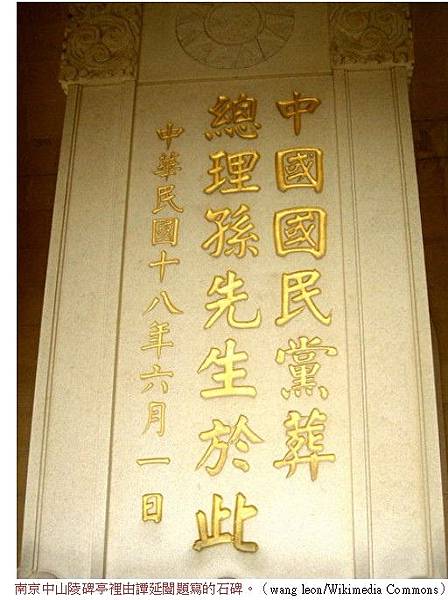 中國國民黨葬
總理孫先生於此
中華民國十八年六月一日
南京中山陵碑亭裡由譚延闓題寫的石碑。（wang leon/Wikimedia Commons）